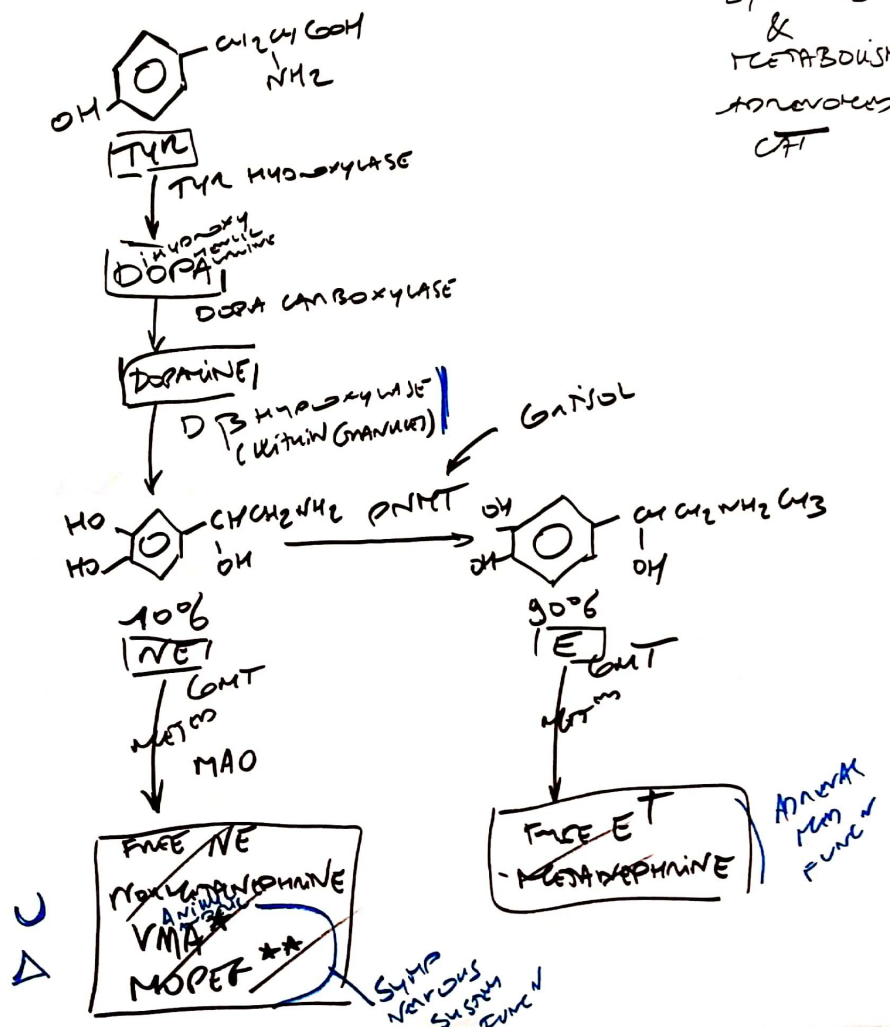 &
METABOLISM
CH2CHCOOH
NH2
OH
TYR
TYR HYDROXYLASE
DOPA
DOPA CARBOXYLASE
DOPAMINE
D β HYDROXYLASE
(WITHIN GRANULES)
CORTISOL
HO
HO
CHCH2NH2
OH
PNMT
OH
OH
CH CH2NH2CH3
OH
10%
NE
COMT
MAO
90%
E
COMT
FREE NE
NORMETANEPHRINE
VMA*
MOPEG**
SYMP
NERVOUS
SYSTEM
FUNCN
FREE E
METANEPHRINE
ADRENAL
MED
FUNCN